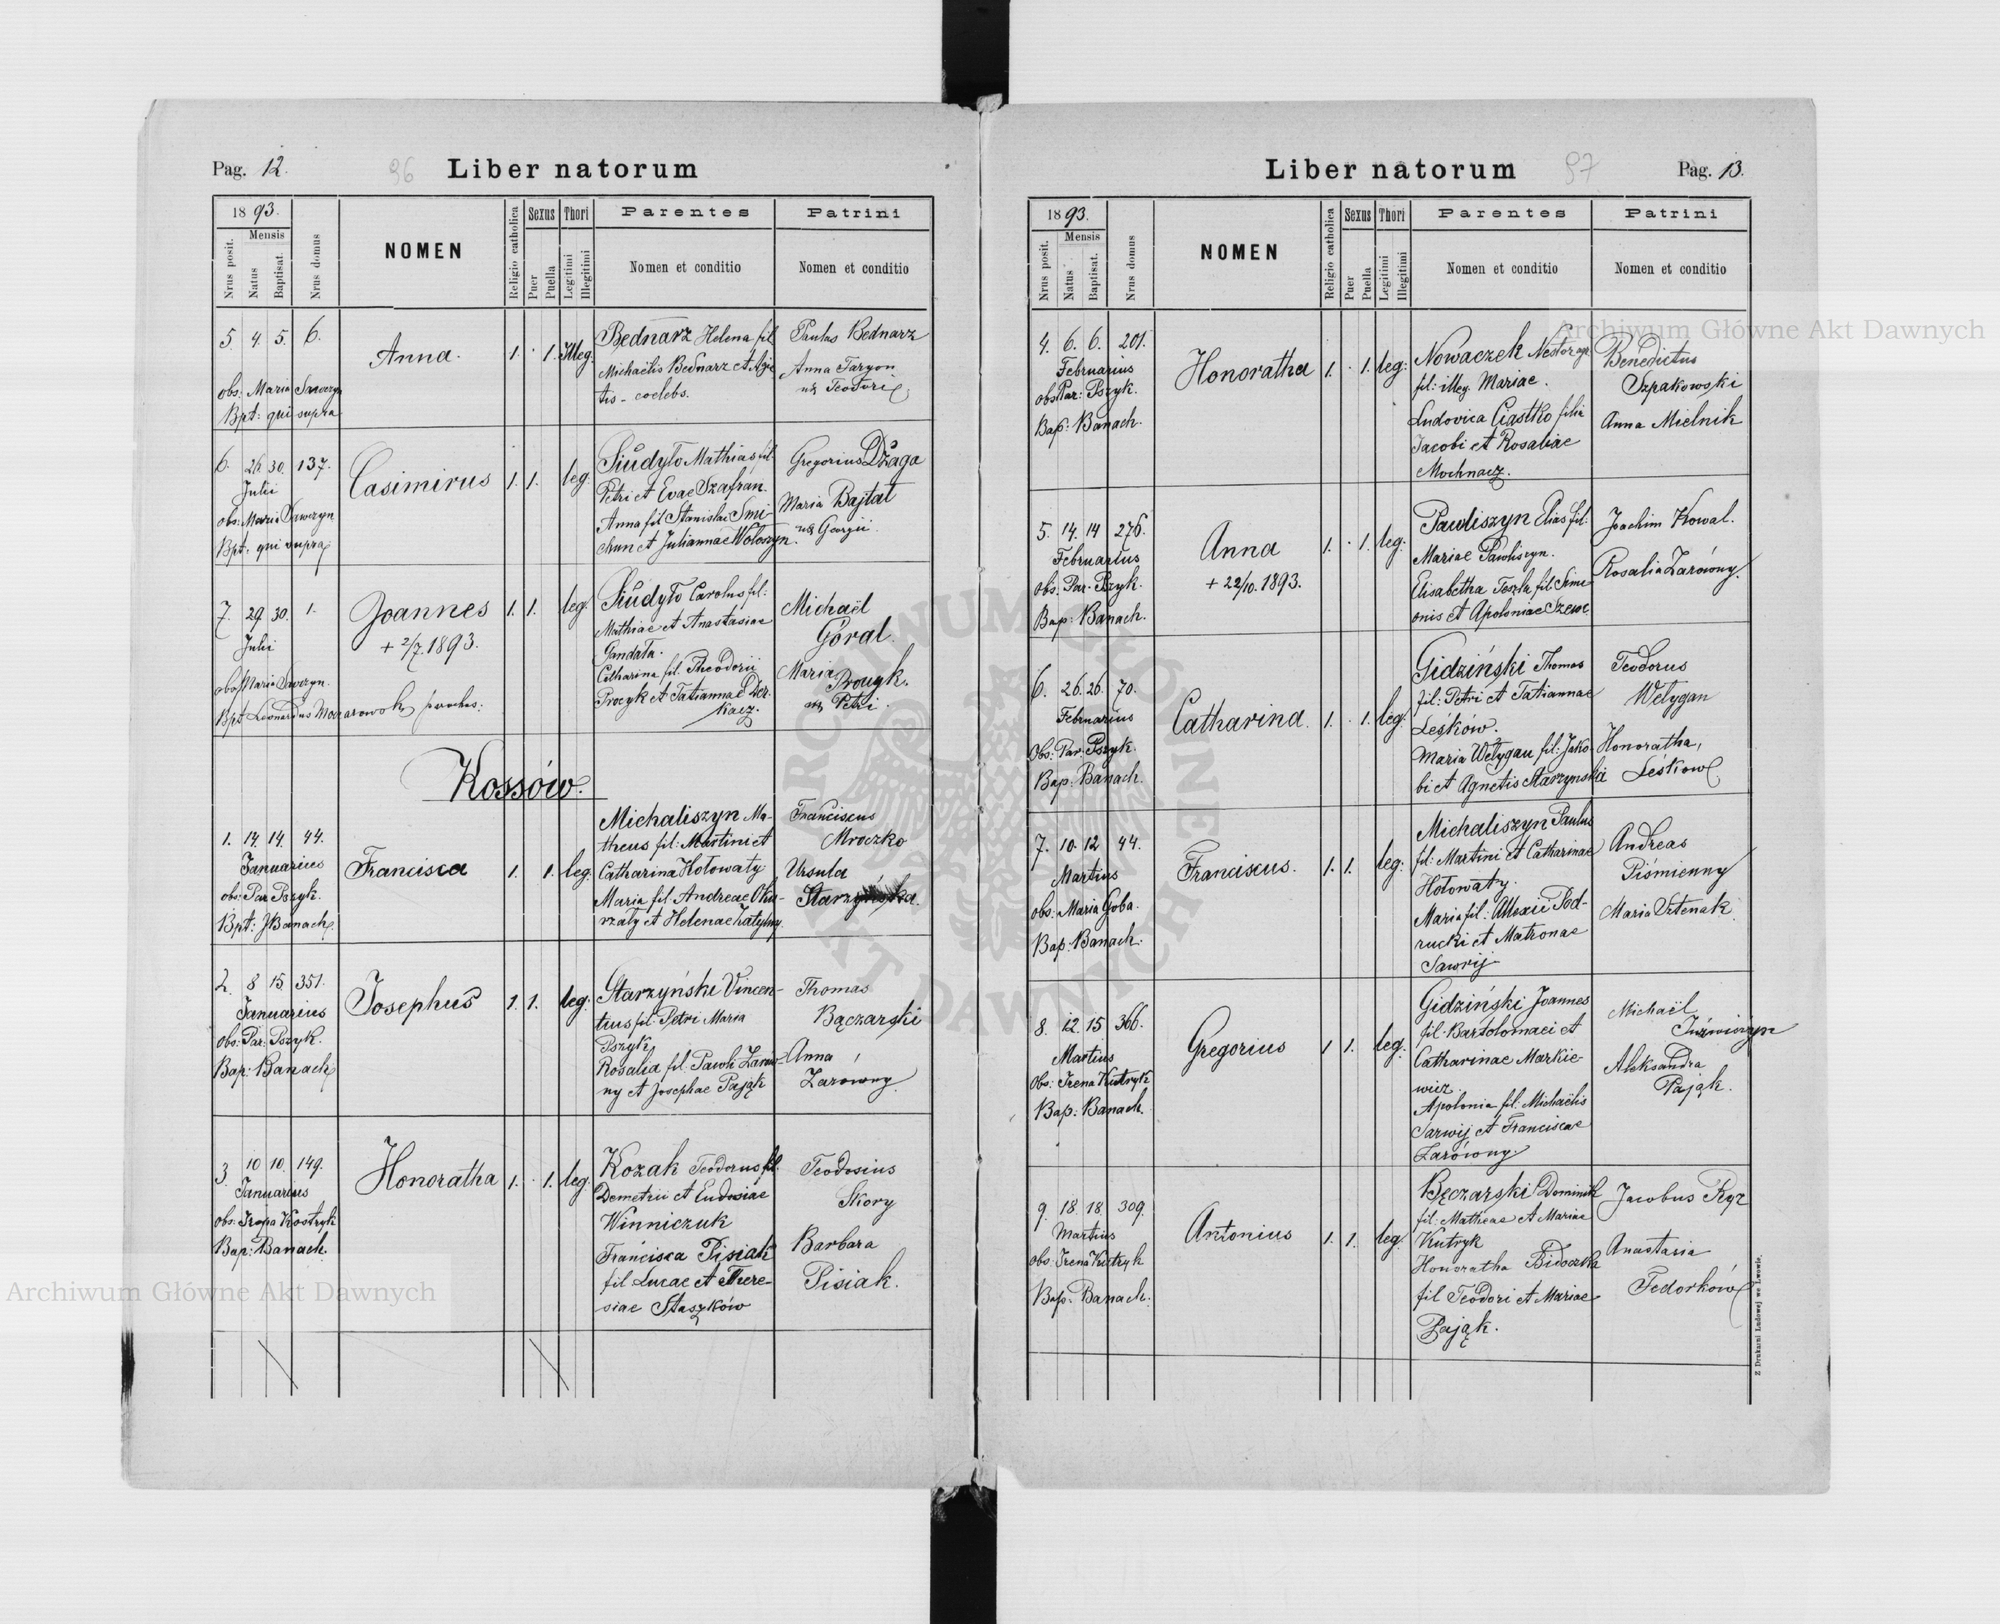 Pag. 12.
96
Liber natorum
1893.
Mensis
Nrus posit.
Natus
Baptisat.
Nrus domus
NOMEN
Religio catholica
Sexus
Puer
Puella
Thori
Legtimi
Illegitimi
Parentes
Nomen et conditio
Patrini
Nomen et conditio
5. 4. 5. 6.
obs: Maria Sawczyn
Bpt: qui supra
Anna.
1. 1. Illeg.
Bednarz Helena fil
Michaëlis Bednarz et Agne
tis - coelebs.
Paulus Bednarz
Anna Taryon
ux Teodori
6. 26. 30. 137.
Julii
obs: Maria Sawczyn
Bpt: qui supra
Casimirus
1. 1. leg.
Siudyło Mathias fil.
Petri et Evae Szafran.
Anna fil Stanislai Smi-
chun et Juliannae Wołoszyn.
Gregorius Dżaga
Maria Bajtał
ux Georgii
7. 29. 30. 1.
Julii
obs Maria Sawczyn.
Bpt Leonardus parohus.
Joannes
+ 2/7. 1893.
1. 1. leg.
Siudyło Carolus fil:
Mathiae et Anastasiae
Gandała.
Catharina fil. Theodorii
Procyk et Tatiannae Der-
kacz.
Michaël
Góral.
Maria
Procyk.
ux Petri.
Kossów.
1. 14. 14. 44.
Januarius
obs: Par. Pszyk.
Bpt: J Banach.
Francisca
1. 1. leg.
Michaliszyn Ma-
theus fil: Martini et
Catharina Hołowaty
Maria fil. Andreae
et Helenae
Franciscus
Mroczko
Ursula
Starzyńska
2. 8 15 351.
Januarius
obs: Par: Pszyk.
Bap: Banach
Josephus
1. 1. leg.
Starzyński Vincen-
tius fil. Petri Maria
Pszyk
Rosalia fil. Pawli Zarów-
ny et Josephae Pająk
Thomas
Bączarski
Anna
Zarówny
3. 10 10. 149.
Januarius
obs: Kostryk
Bap: Banach.
Honoratha
1. 1. leg.
Kozak Teodorus fil.
Demetrii et Eudosiae
Winniczuk
Francisca Pisiak
fil Lucae et There-
siae Staszków
Teodosius
Skory
Barbara
Pisiak.
Liber natorum
97
Pag. 13.
1893.
Mensis
Nrus posit.
Natus
Baptisat.
Nrus domus
NOMEN
Religio catholica
Sexus
Puer
Puella
Thori
Legtimi
Illegitimi
Parentes
Nomen et conditio
Patrini
Nomen et conditio
4. 6. 6. 201.
Februarius
obs: Par: Pszyk.
Bap: Banach.
Honoratha
1. 1. leg:
Nowaczek Nestor
fil: illeg. Mariae.
Ludovica Ciastko filia
Jacobi et Rosaliae
Mochnacz.
Benedictus
Szpakowski
Anna Mielnik
5. 14. 14 276.
Februarius
obs. Par. Pszyk.
Bap: Banach.
Anna
+ 22/10. 1893.
1. 1. leg:
Pawliszyn Elias fil:
Mariae Pawliszyn.
Elisabetha Teszla fil Sime
onis et Apoloniae Szewc
Joachim Kowal.
Rosalia Zarówny.
6. 26. 26. 70.
Februarius
Obs: Par. Pszyk.
Bap: Banach.
Catharina.
1. 1. leg:
Gidziński Thomas
fil: Petri et Tatiannae
Leśków.
Maria Wełygan fil: Jako-
bi et Agnetis Starzynski
Teodorus
Wełygan
Honoratha,
Leśkow
7. 10. 12 44.
Martius
obs: Maria Goba.
Bap: Banach.
Franciscus.
1. 1. leg:
Michaliszyn Paulus
fil: Martini et Catharinae
Hołowaty.
Maria fil: Allexii Pod-
rucki et Matronae
Sawrij
Andreas
Piśmienny
Maria Sztenak
8. 12. 15 366.
Martius
Obs: Irena Kutryk
Bap: Banach.
Gregorius
1 1. leg:
Gidziński Joannes
fil. Bartolomaei et
Catharinae Markie-
wicz.
Apolonia fil. Michaëlis
Sarwij et Franciscae
Zarówny
Michaël
Juzwiszyn
Aleksandra
Pająk.
9. 18. 18. 309.
Martius
obs: Irena Kutryk
Bap. Banach.
Antonius
1. 1. leg.
Bęczarski Dominik
fil: Matheae et Mariae
Kutryk
Honoratha Bidoczka
fil Teodori et Mariae
Pająk.
Jacobus Ryz
Anastasia
Fedorków
Z Drukarni Ludowej we Lwowie.
Archiwum Główne Akt Dawnych
Archiwum Główne Akt Dawnych
ARCHIWUM GŁÓWNE AKT DAWNYCH